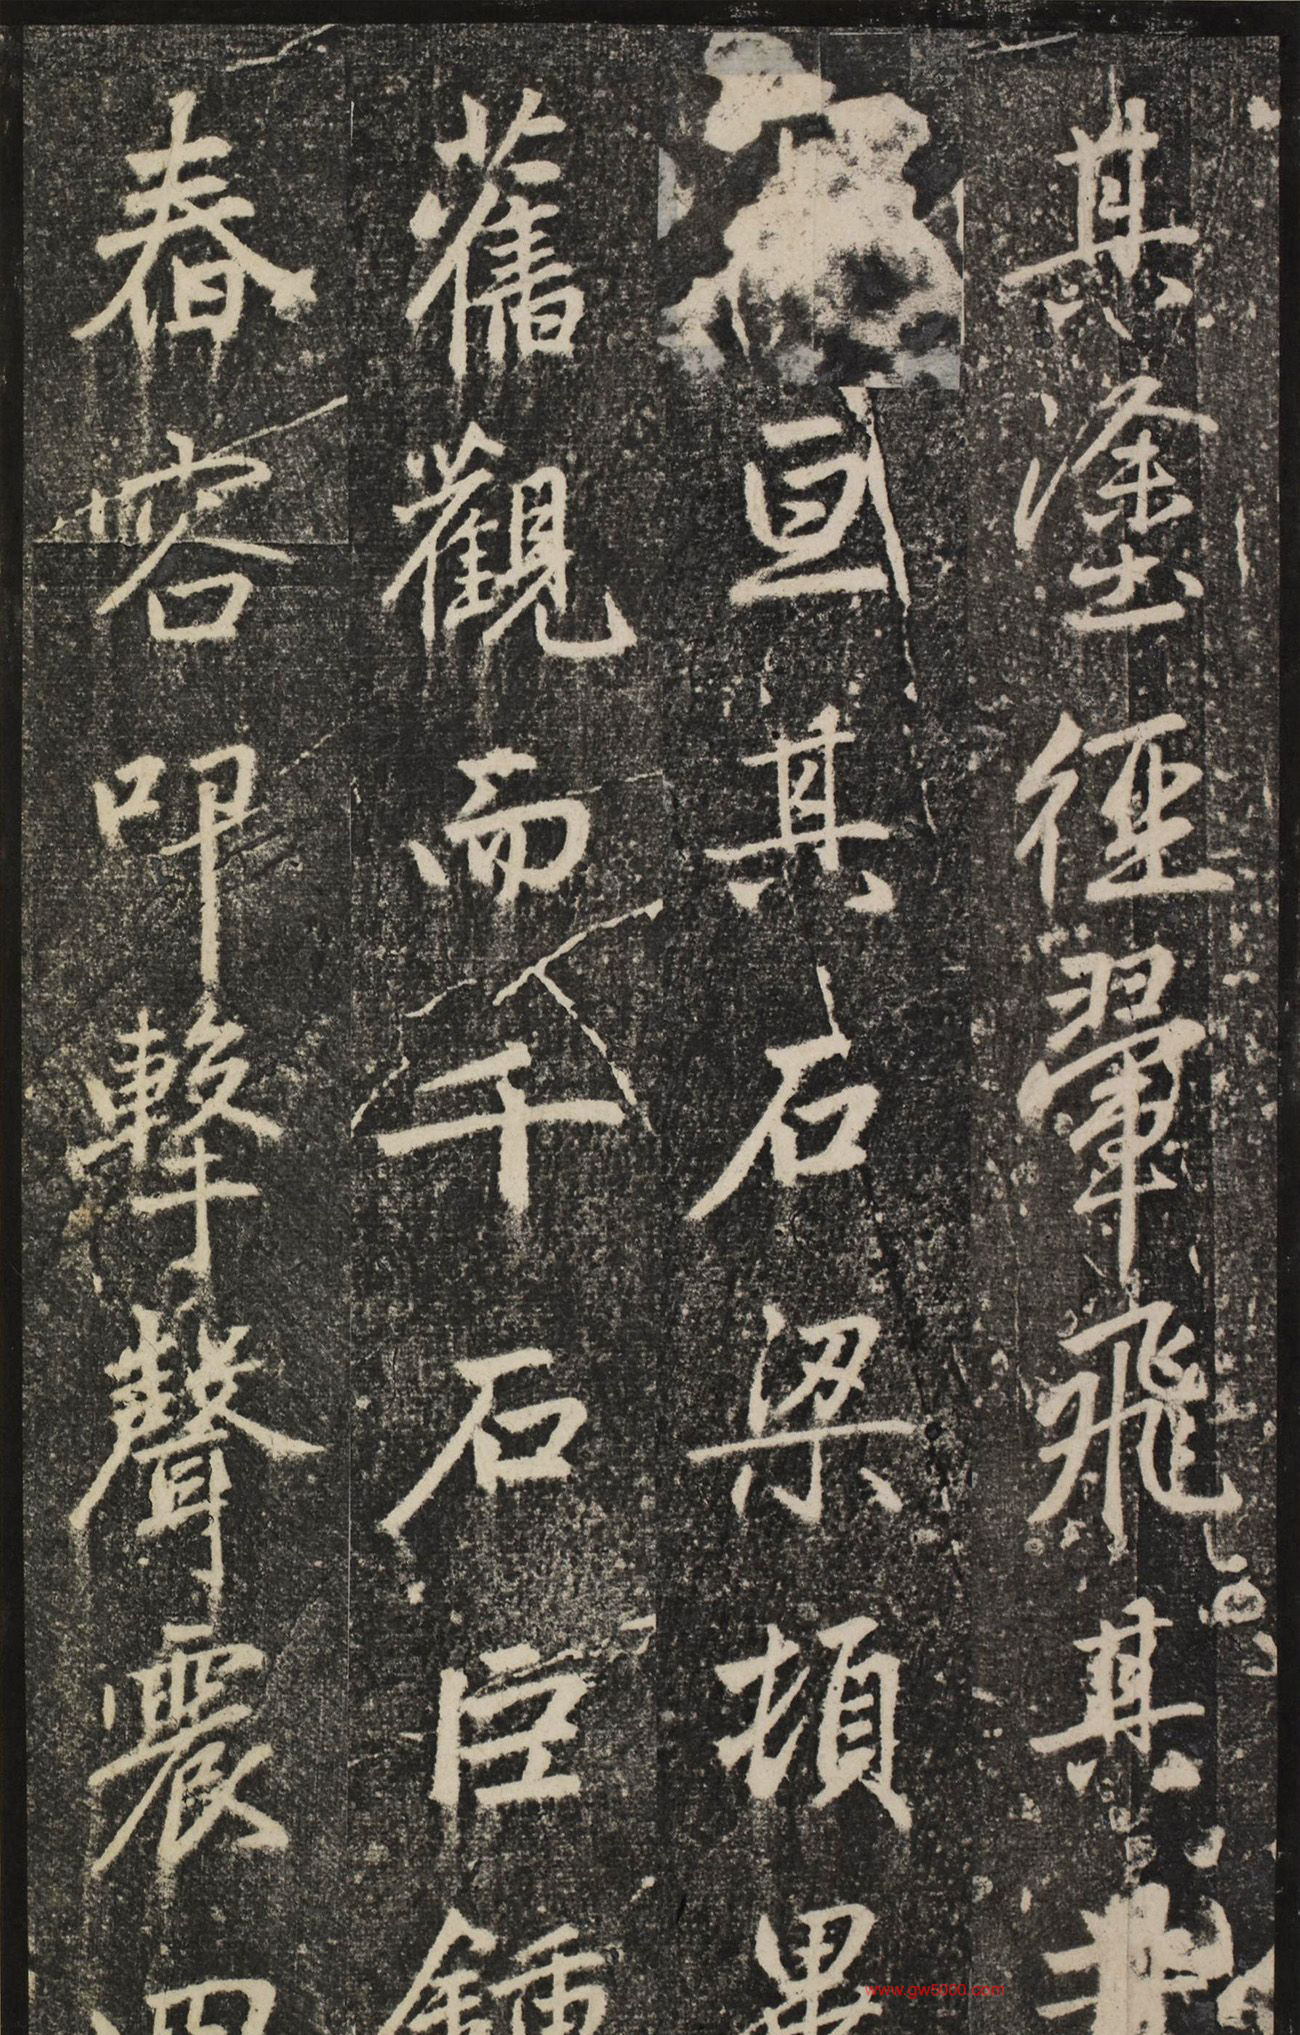 其塗徑翬飛其
亘其石梁頓異
舊觀而千石巨鍾
舂容叩擊聲震四
www.gw6060.com